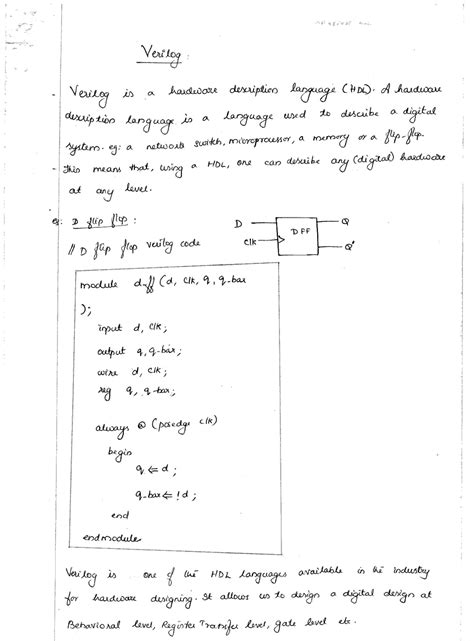 Verilog
- Verilog is a hardware description language (HDL). A hardware
description language is a language used to describe a digital
system. eg: a network switch, microprocessor, a memory or a flip-flop.
- This means that, using a HDL, one can describe any (digital) hardware
at any level.
eg: D flip flop :
// D flip flop verilog code
D
Clk
DFF
Q
Q'
module d_ff (d, clk, q, q_bar
);
input d, clk;
output q, q_bar;
wire d, clk;
reg q, q_bar;
always @ (posedge clk)
begin
q <= d ;
q_bar <= ! d ;
end
endmodule
Verilog is one of the HDL languages available in the industry
for hardware designing. It allows us to design a digital design at
Behavioral level, Register Transfer level, gate level etc.